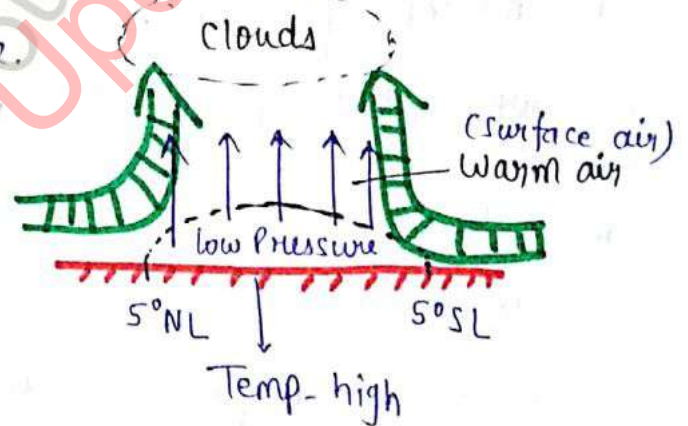 2.
Clouds
(surface air)
Warm air
low Pressure
5°NL
5°SL
Temp- high